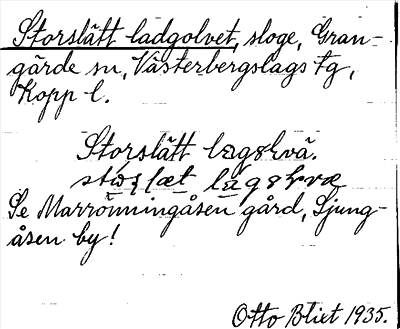 Storslätt ladgolvet, sloge, Gran-
gärde sn, Västerbergslags tg,
Kopp l.
Storslätt
Se Marrönningåsen gård, Ljung-
åsen by!
Otto Blixt 1935.